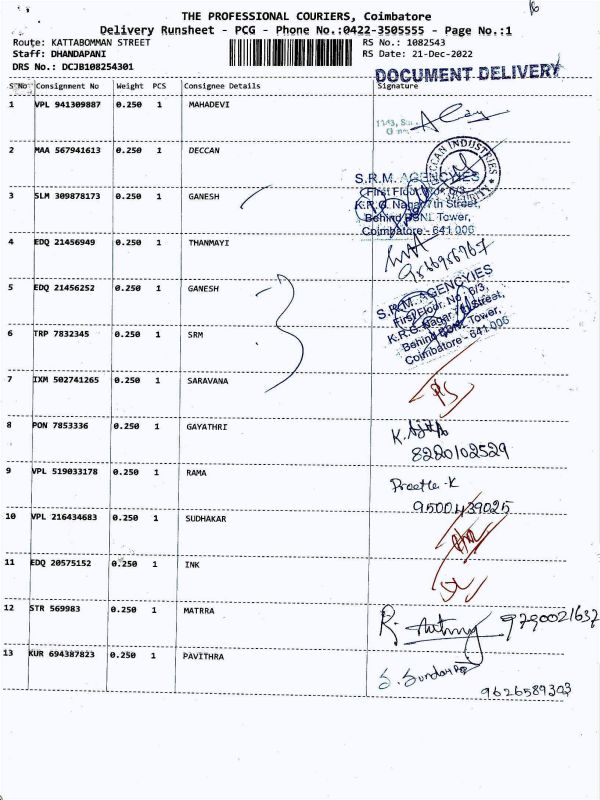 16
THE PROFESSIONAL COURIERS, Coimbatore
Delivery Runsheet - PCG - Phone No.:0422-3505555 - Page No.:1
Route: KATTABOMMAN STREET RS No.: 1082543
Staff: DHANDAPANI RS Date: 21-Dec-2022
DRS No.: DCJB108254301
DOCUMENT DELIVERY
S No Consignment No Weight PCS Consignee Details Signature
1 VPL 941309887 0.250 1 MAHADEVI
2 MAA 567941613 0.250 1 DECCAN
DECCAN INDUSTRIES
S.R.M. AGENCYIES
3 SLM 309878173 0.250 1 GANESH
First Floor, No: 6/3,
K.R.G. Nagar 7th Street,
Behind BSNL Tower,
Coimbatore - 641 006
4 EDQ 21456949 0.250 1 THANMAYI
5 EDQ 21456252 0.250 1 GANESH
S.R.M. AGENCYIES
First Floor, No: 6/3,
K.R.G. Nagar 7th Street,
Behind BSNL Tower,
Coimbatore - 641 006
6 TRP 7832345 0.250 1 SRM
3
7 IXM 502741265 0.250 1 SARAVANA
8 PON 7853336 0.250 1 GAYATHRI
8220102529
9 VPL 519033178 0.250 1 RAMA
9500439025
10 VPL 216434683 0.250 1 SUDHAKAR
11 EDQ 20575152 0.250 1 INK
12 STR 569983 0.250 1 MATRRA
R. Antony 9790021637
13 KUR 694387823 0.250 1 PAVITHRA
9626589303